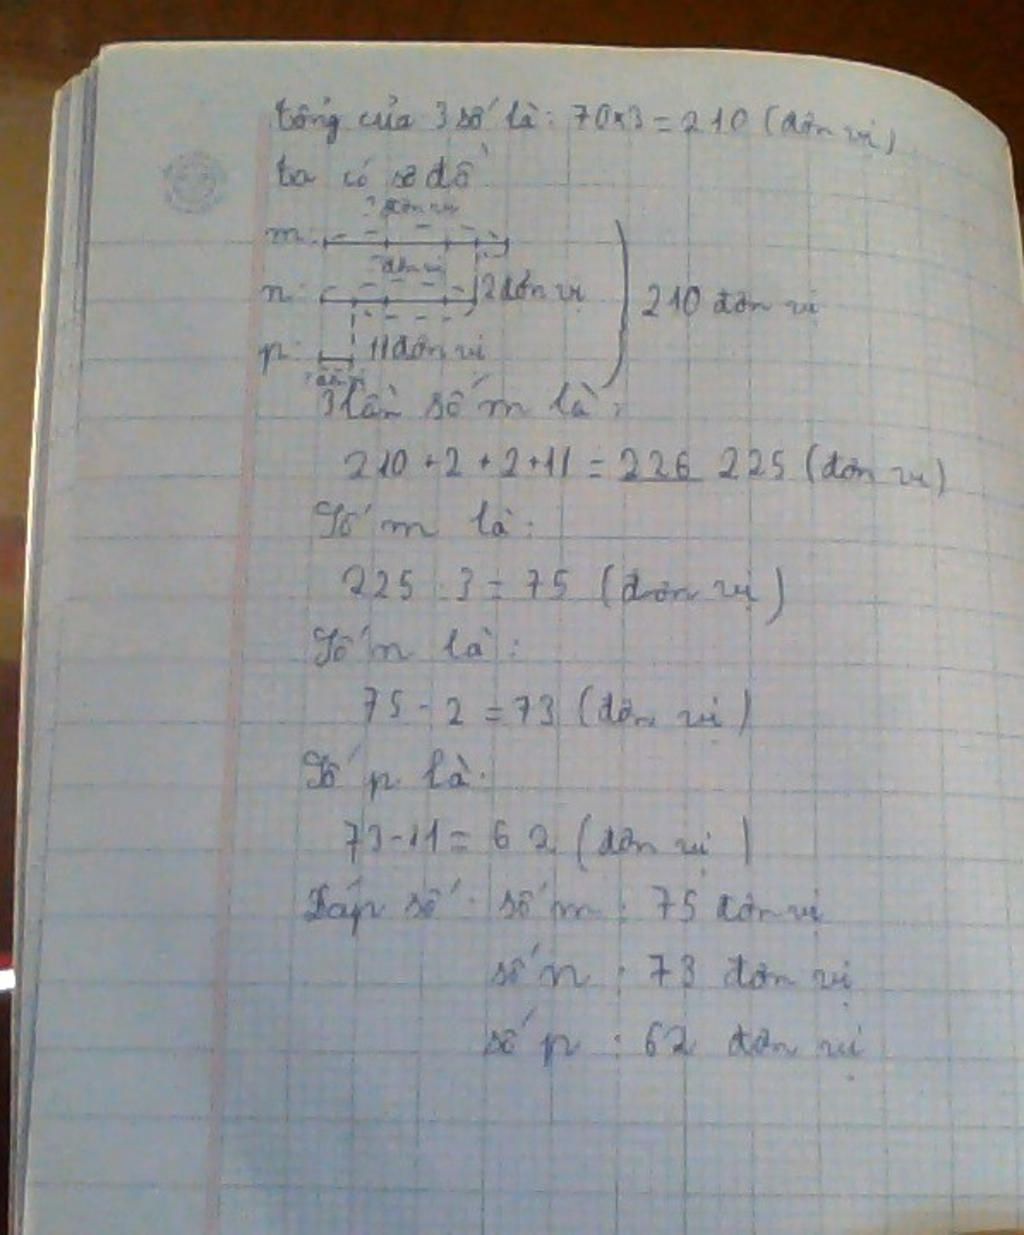 tổng của 3 số là: 70x3 = 210 (đơn vị)
ta có sơ đồ
? đơn vị
m:
? đơn vị
n: 2 đơn vị 210 đơn vị
p: 11 đơn vị
? đơn vị
3 lần số m là:
210 + 2 + 2 + 11 = 226 225 (đơn vị)
Số m là:
225 : 3 = 75 (đơn vị)
Số n là:
75 - 2 = 73 (đơn vị)
Số p là:
73 - 11 = 62 (đơn vị)
Đáp số: số m: 75 đơn vị
số n: 73 đơn vị
số p: 62 đơn vị